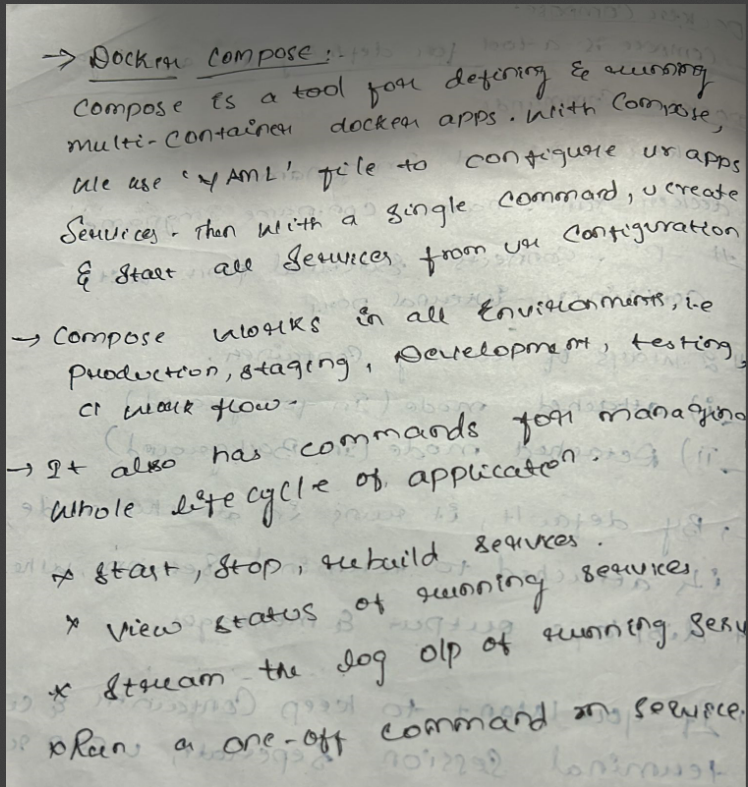 → Docker Compose :-
Compose is a tool for defining & running
multi-container docker apps. With Compose,
we use 'YAML' file to configure ur apps
Services. Then with a single command, u create
& start all services from ur configuration
→ Compose works in all environments, i.e
production, staging, Development, testing,
CI work flow.
→ It also has commands for managing
whole life cycle of application.
* start, stop, rebuild services.
* view status of running services
* stream the log o/p of running serv
* Run a one-off command on service.